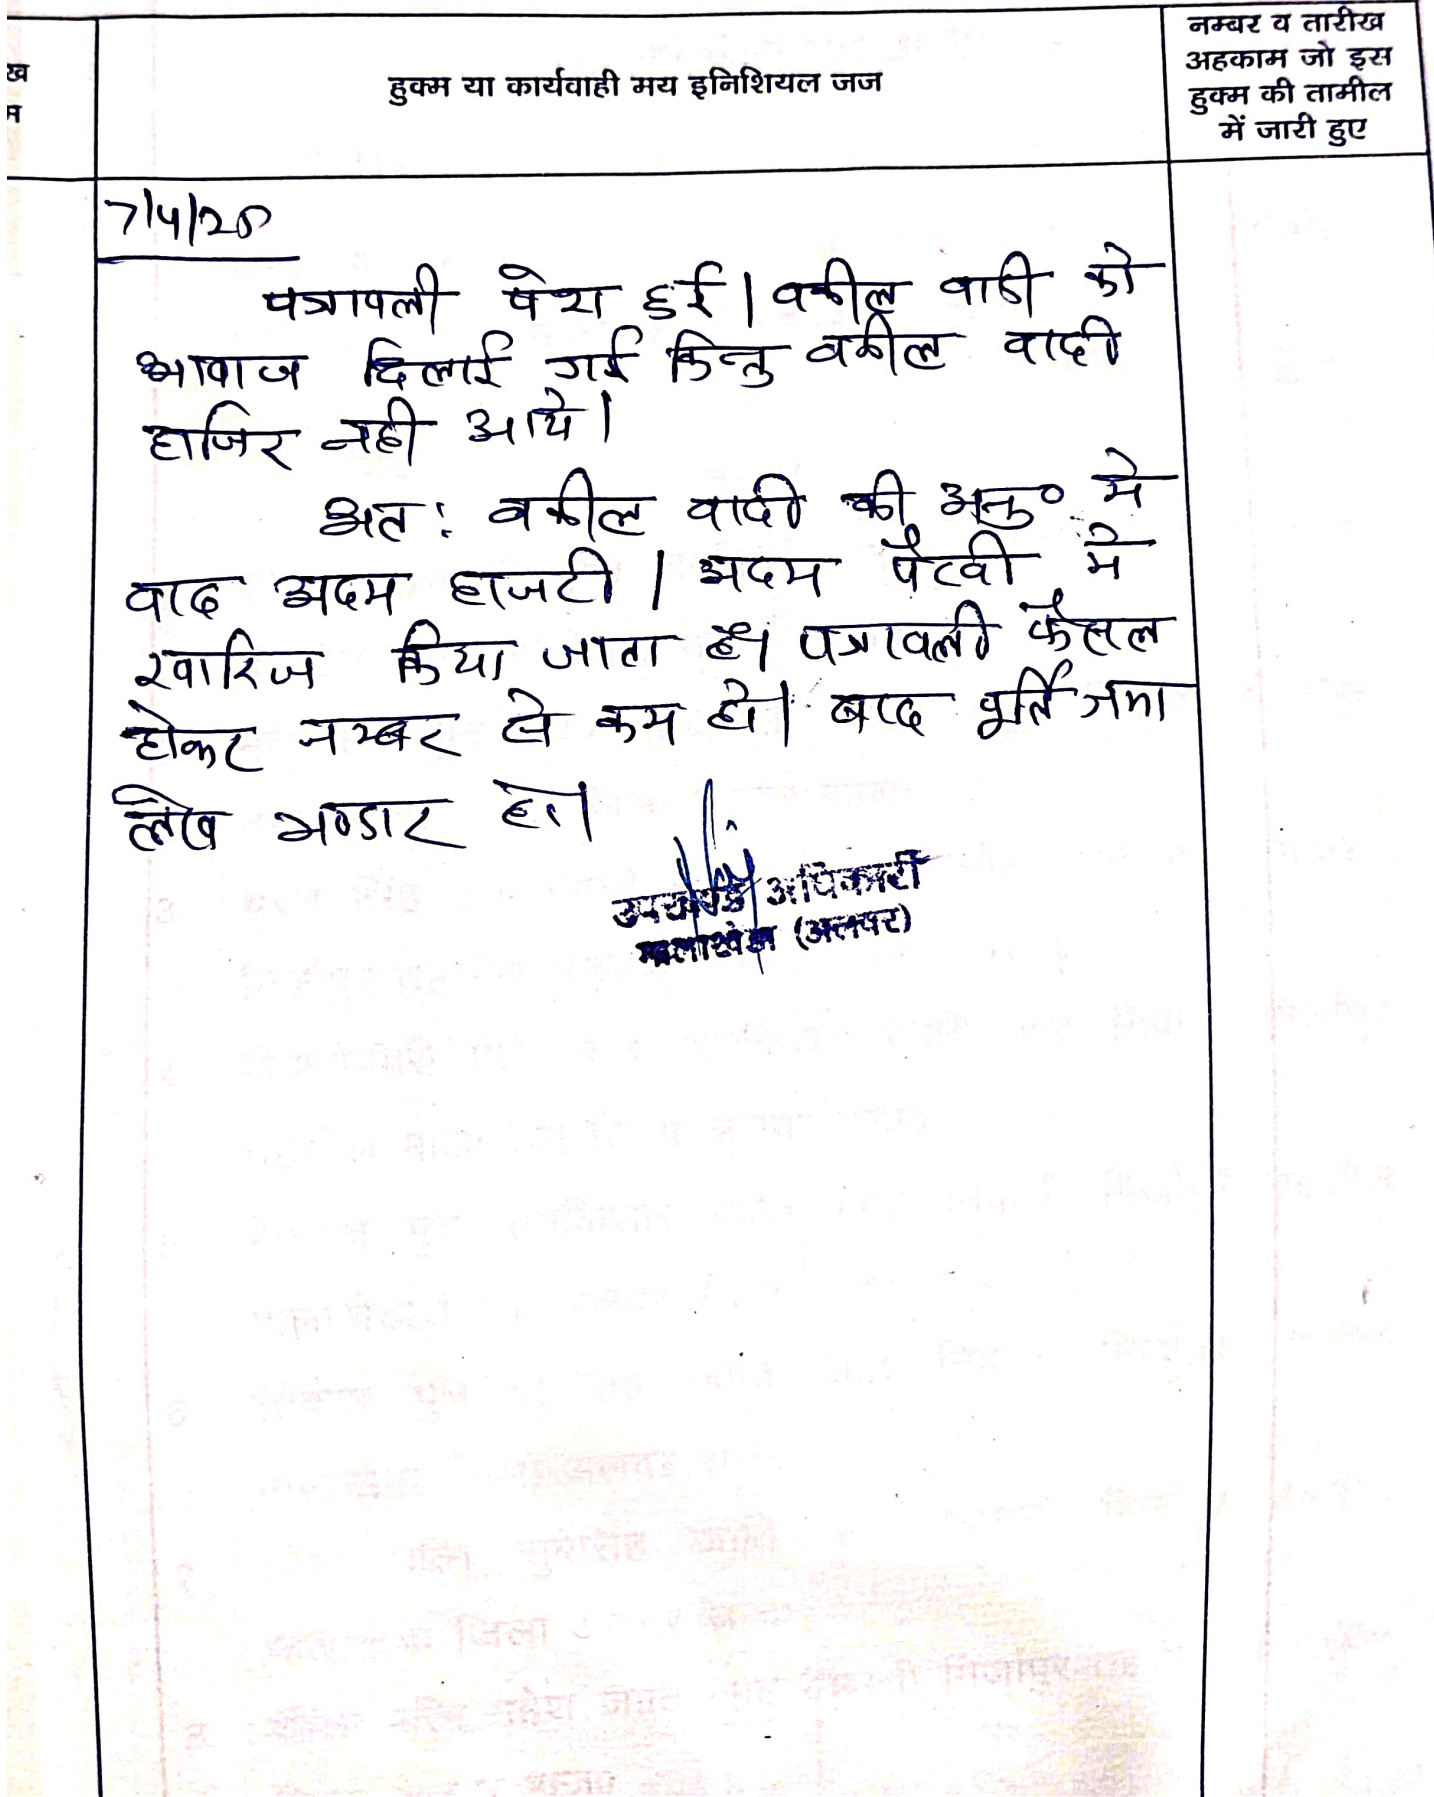 ख
हुक्म या कार्यवाही मय इनिशियल जज
नम्बर व तारीख
अहकाम जो इस
हुक्म की तामील
में जारी हुए
7/4/25
पत्रावली पेश हुई। वकील वादी को
आवाज दिलाई गई किन्तु वकील वादी
हाजिर नही आये।
अत: वकील वादी की अनु० मे
वाद अदम हाजरी / अदम पैरवी मे
खारिज किया जाता है। पत्रावली फैसल
होकर नम्बर से कम हो। बाद पूर्ति जमा
लेख भण्डार हो।
उपखण्ड अधिकारी
मालाखेडा (अलवर)